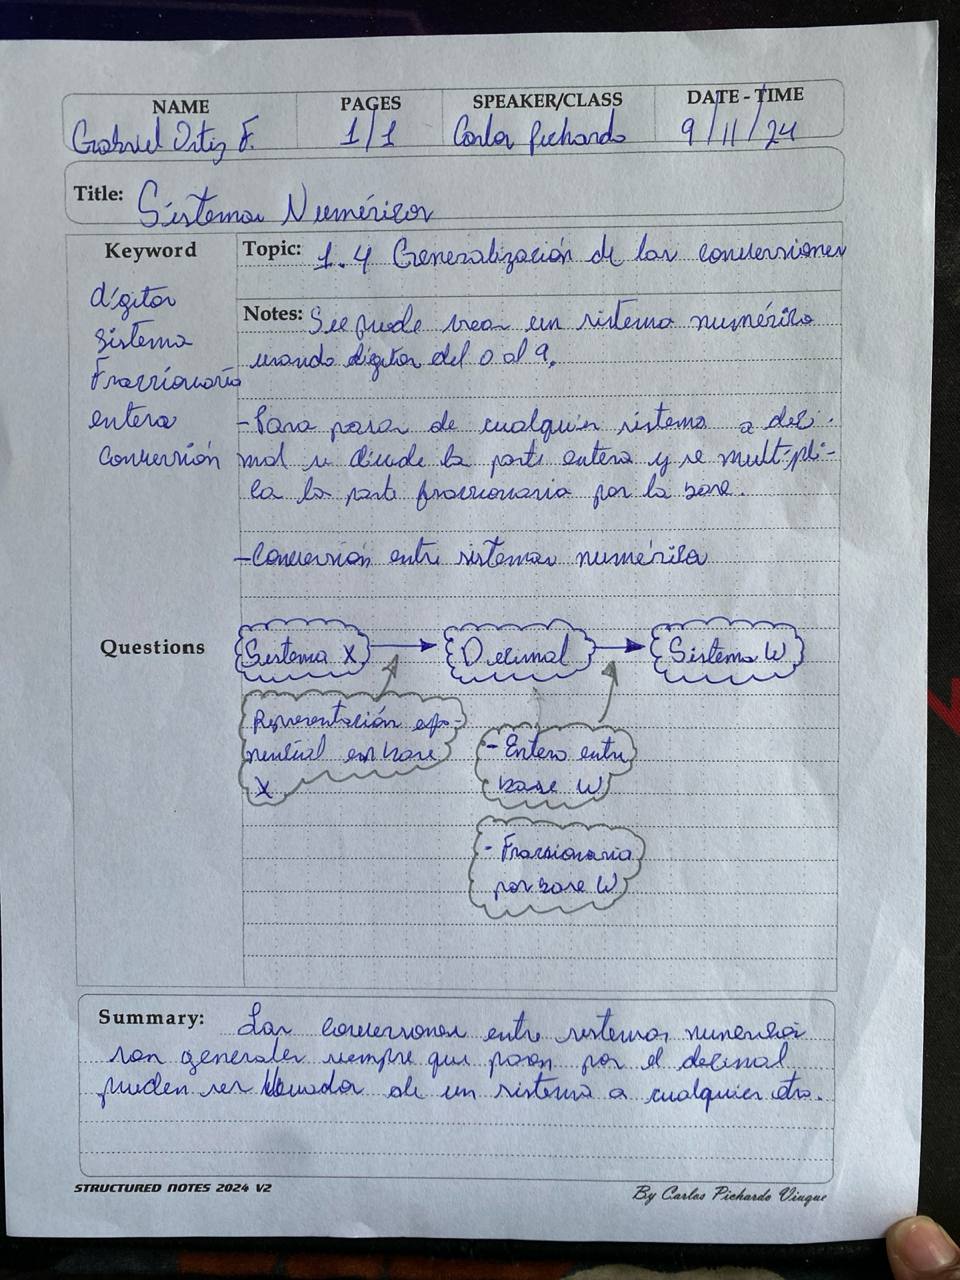 NAME PAGES SPEAKER/CLASS DATE - TIME
Gabriel Ortiz F. 1/1 Carlos Pichardo 9/11/24
Title: Sistemas Numéricos
Keyword
dígitos
sistema
Fraccionaria
entera
conversión
Topic: 1.4 Generalización de las conversiones
Notes: See puede crear un sistema numérico
usando dígitos del 0 al 9.
- Para pasar de cualquier sistema a deci-
mal se divide la parte entera y se multipli-
ca la parte fraccionaria por la base.
- Conversión entre sistemas numérica
Questions
Sistema X Decimal Sistema W
Representación expo-
nencial en base
X
- Entero entre
base W
- Fraccionaria
por base W
Summary: Las conversiones entre sistemas numéricos
son generales siempre que pasen por el decimal
pueden ser llevados de un sistema a cualquier otro.
STRUCTURED NOTES 2024 V2
By Carlos Pichardo Viuque